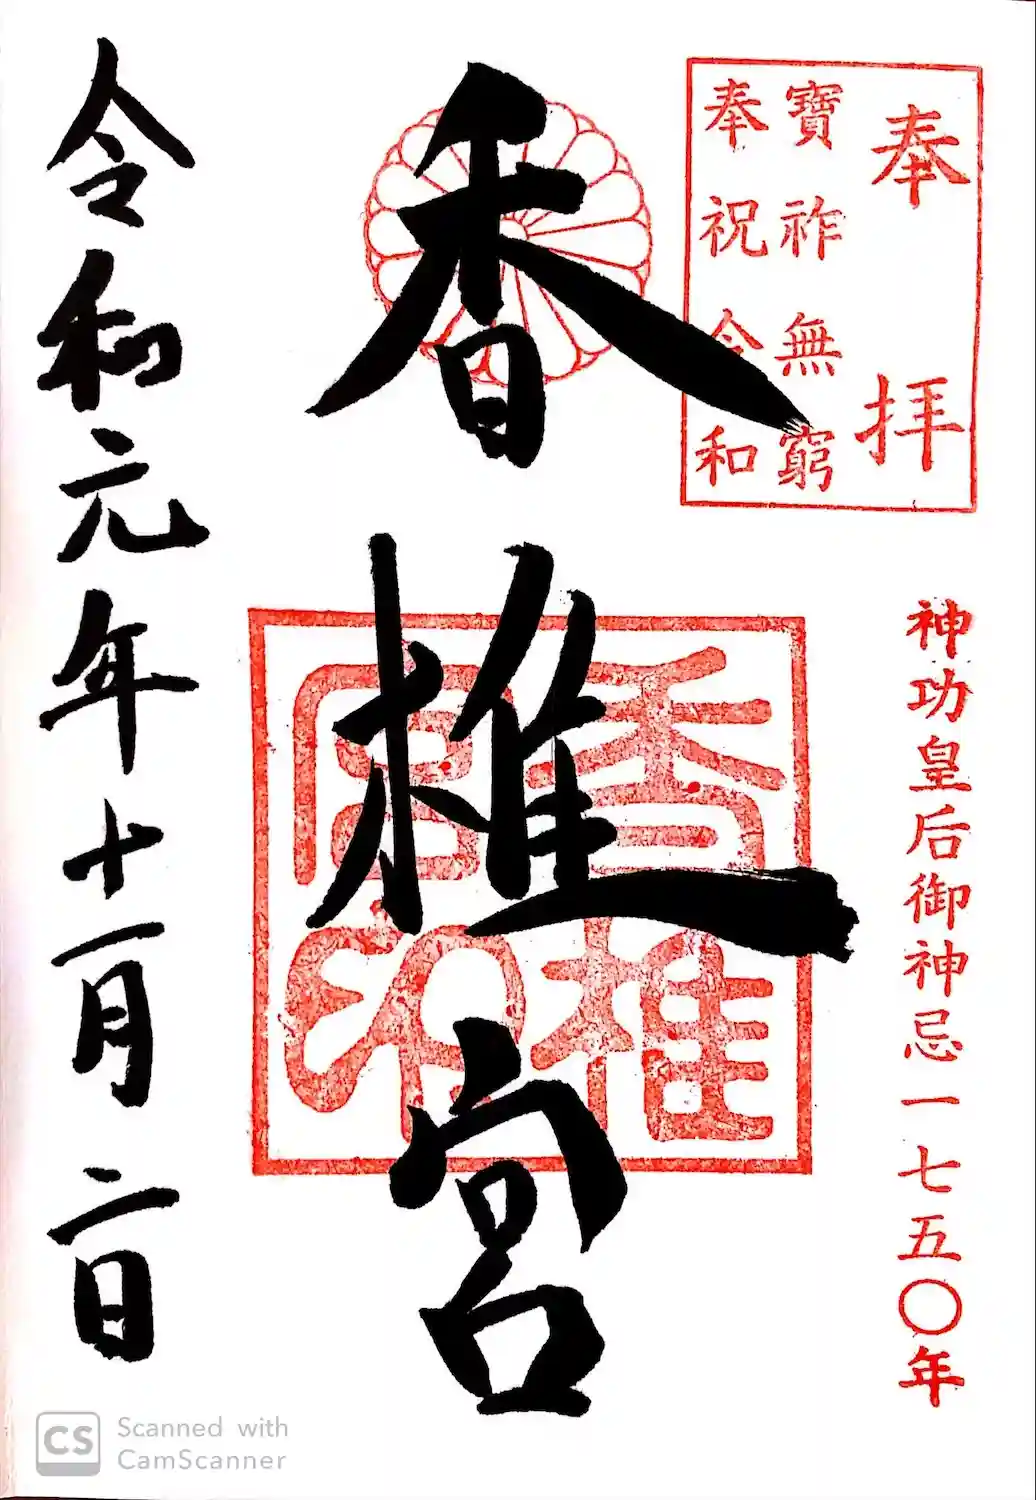 奉拝
寶祚無窮
奉祝令和
神功皇后御神忌一七五〇年
香椎宮
香椎
宮印
令和元年十一月二日
CS
Scanned with
CamScanner